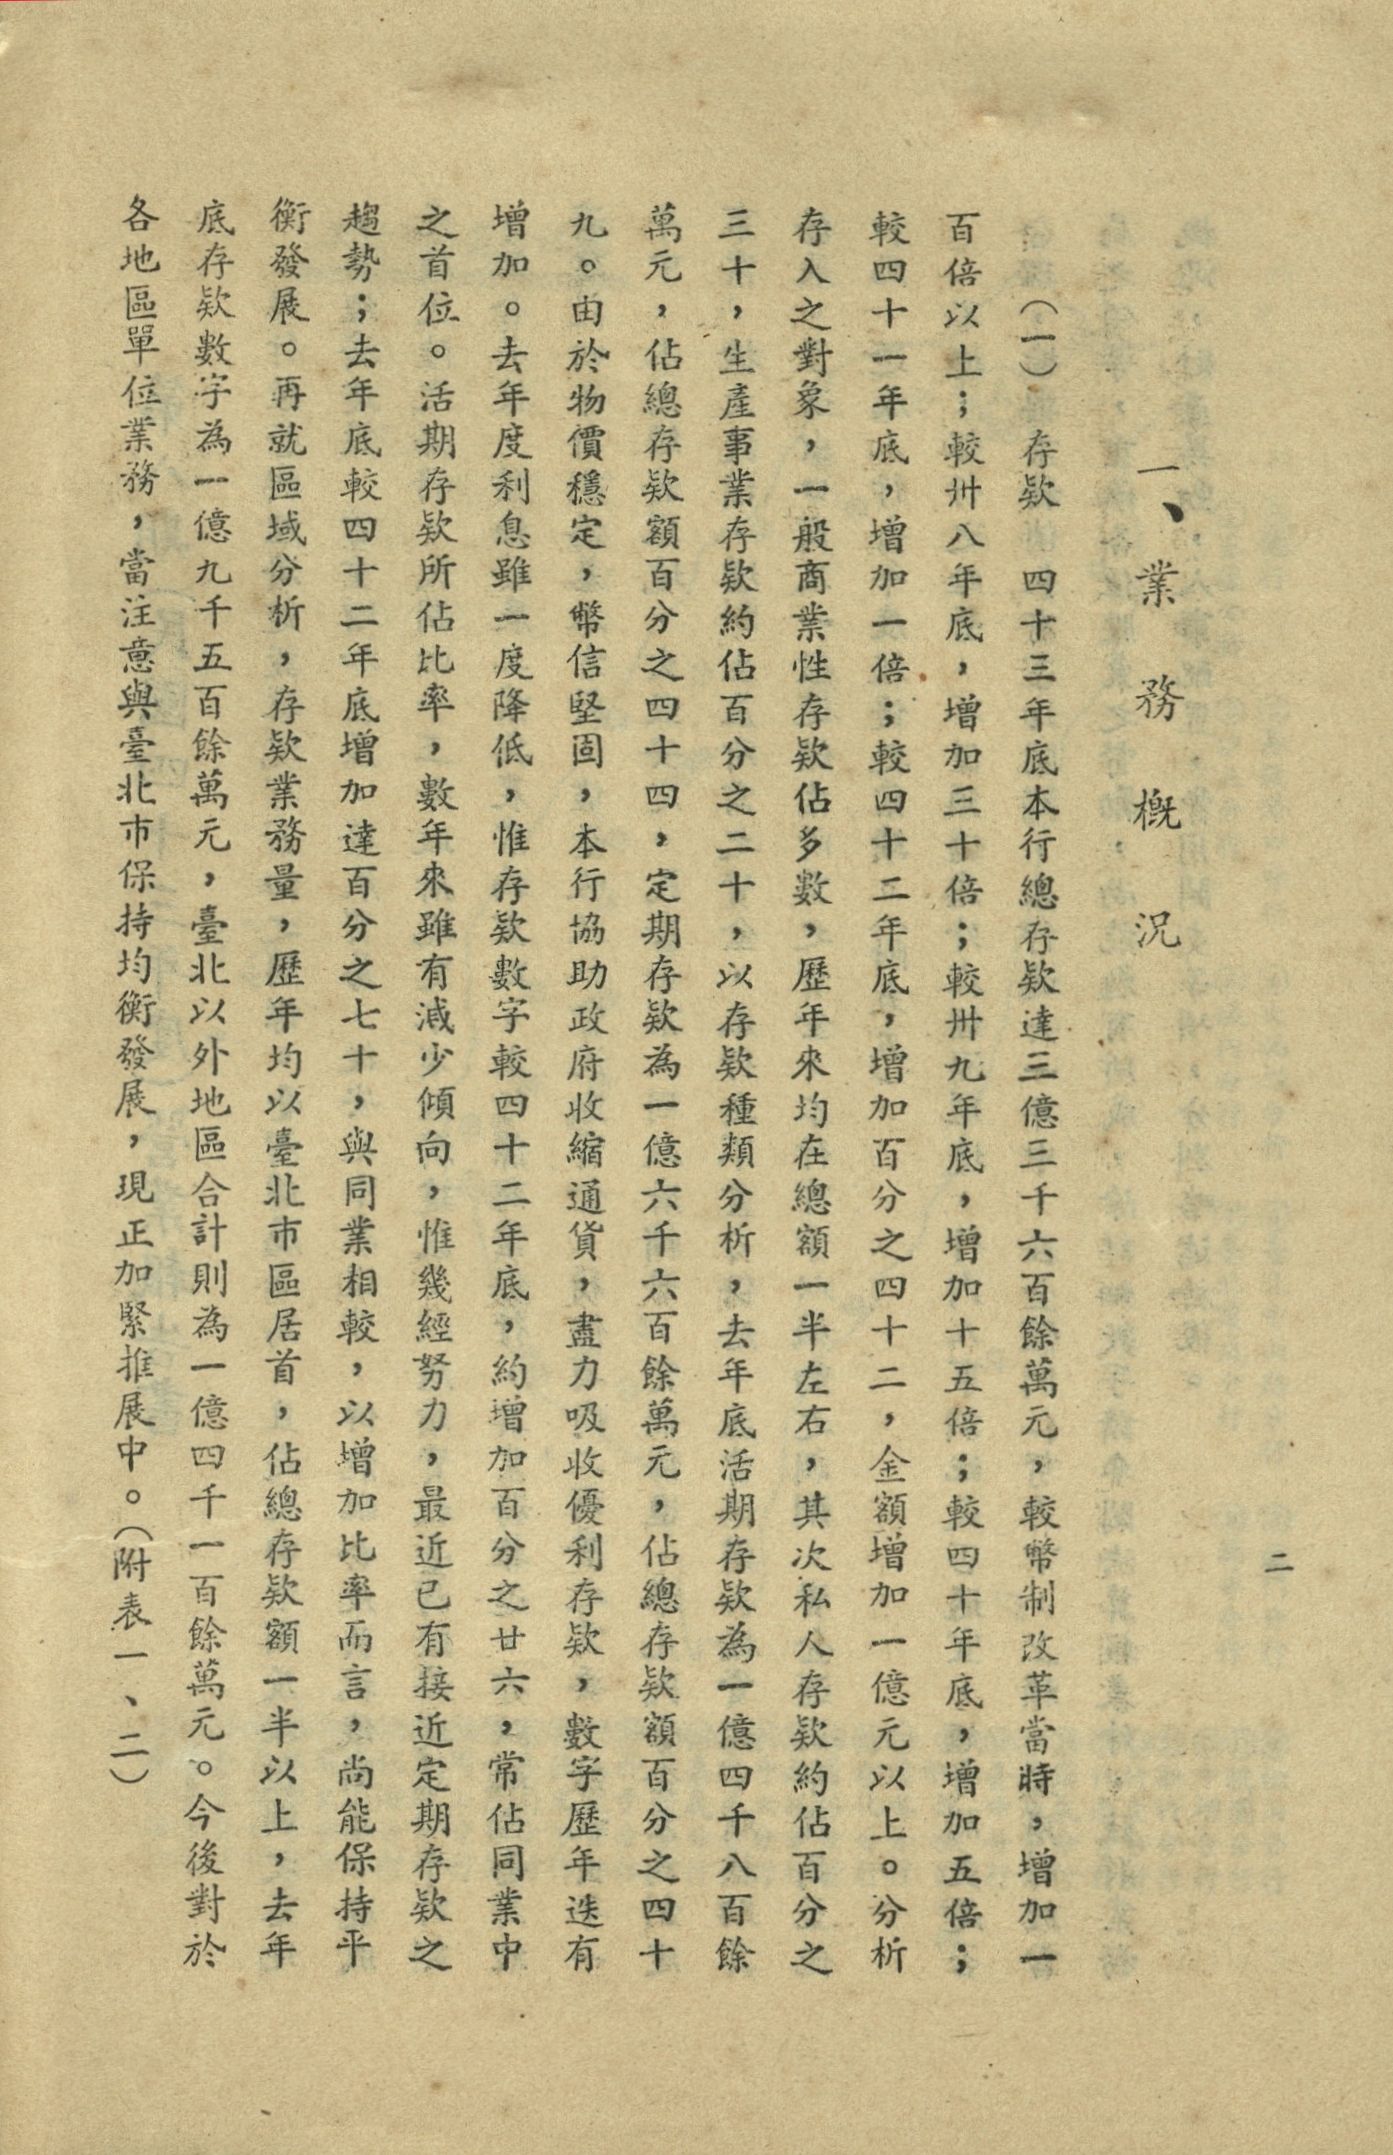 二
一、業務概況
（一）　存欵　四十三年底本行總存欵達三億三千六百餘萬元，較幣制改革當時，增加一
百倍以上；較卅八年底，增加三十倍；較卅九年底，增加十五倍；較四十年底，增加五倍；
較四十一年底，增加一倍；較四十二年底，增加百分之四十二，金額增加一億元以上。分析
存入之對象，一般商業性存欵佔多數，歷年來均在總額一半左右，其次私人存欵約佔百分之
三十，生產事業存欵約佔百分之二十，以存欵種類分析，去年底活期存欵為一億四千八百餘
萬元，佔總存欵額百分之四十四，定期存欵為一億六千六百餘萬元，佔總存欵額百分之四十
九。由於物價穩定，幣信堅固，本行協助政府收縮通貨，盡力吸收優利存欵，數字歷年迭有
增加。去年度利息雖一度降低，惟存欵數字較四十二年底，約增加百分之廿六，常佔同業中
之首位。活期存欵所佔比率，數年來雖有減少傾向，惟幾經努力，最近已有接近定期存欵之
趨勢；去年底較四十二年底增加達百分之七十，與同業相較，以增加比率而言，尚能保持平
衡發展。再就區域分析，存欵業務量，歷年均以臺北市區居首，佔總存欵額一半以上，去年
底存欵數字為一億九千五百餘萬元，臺北以外地區合計則為一億四千一百餘萬元。今後對於
各地區單位業務，當注意與臺北市保持均衡發展，現正加緊推展中。（附表一、二）